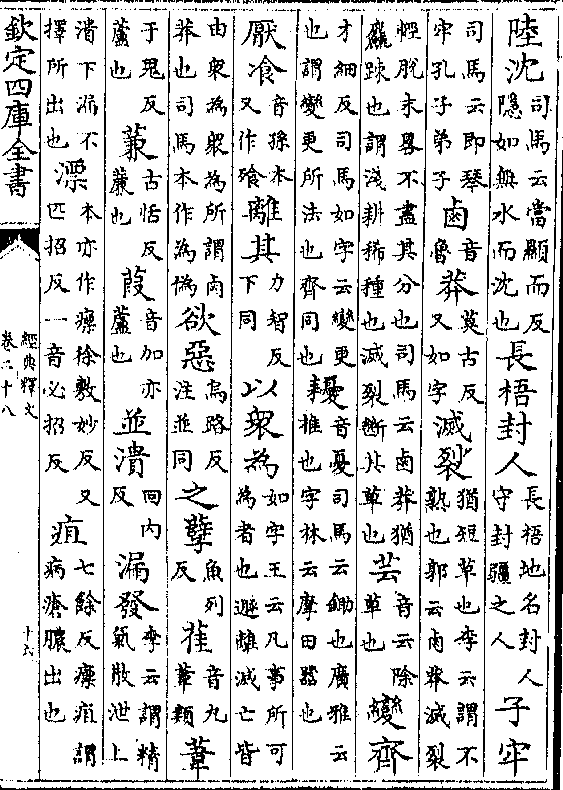 陸沈司馬云當顯而反隱如無水而沈也長梧封人長梧地名封人守封疆之人子牢
司馬云即琴牢孔子弟子鹵音魯莽莫古反又如字滅裂猶短草也李云謂不熟也郭云鹵莽滅裂
輕脫末畧不盡其分也司馬云鹵莽猶麤踈也謂淺耕稀種也滅裂斷其草也芸音云除草也變齊
才細反司馬如字云變更也謂變更所法也齊同也耰音憂司馬云鋤也廣雅云椎也字林云摩田器也
厭飧音孫本又作飱離其力智反下同以衆為如字王云凡事所可為者也遯離滅亡皆
由衆為衆為所謂鹵莽也司馬本作為偽欲惡烏路反注並同之孽魚列反萑音丸葦類葦
于鬼反蘆也蒹古恬反薕也葭音加亦蘆也並潰回内反漏發李云謂精氣散泄上
潰下漏不擇所出也漂本亦作瘭徐敷妙反又匹招反一音必招反疽七餘反瘭疽謂病瘡膿出也
欽定四庫全書
經典釋文
卷二十八
十六